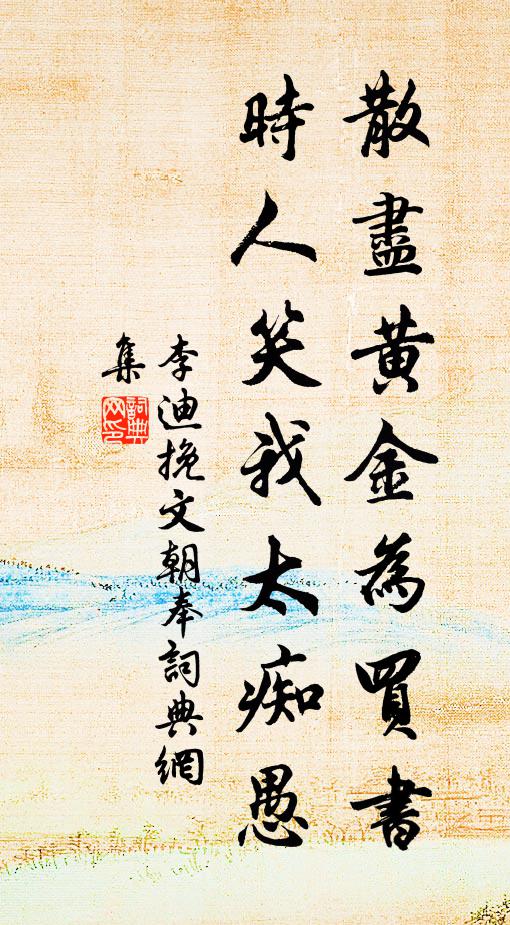 散盡黃金為買書
時人笑我太痴愚
李迪挽文朝奉詞典網
集
詞典
网印